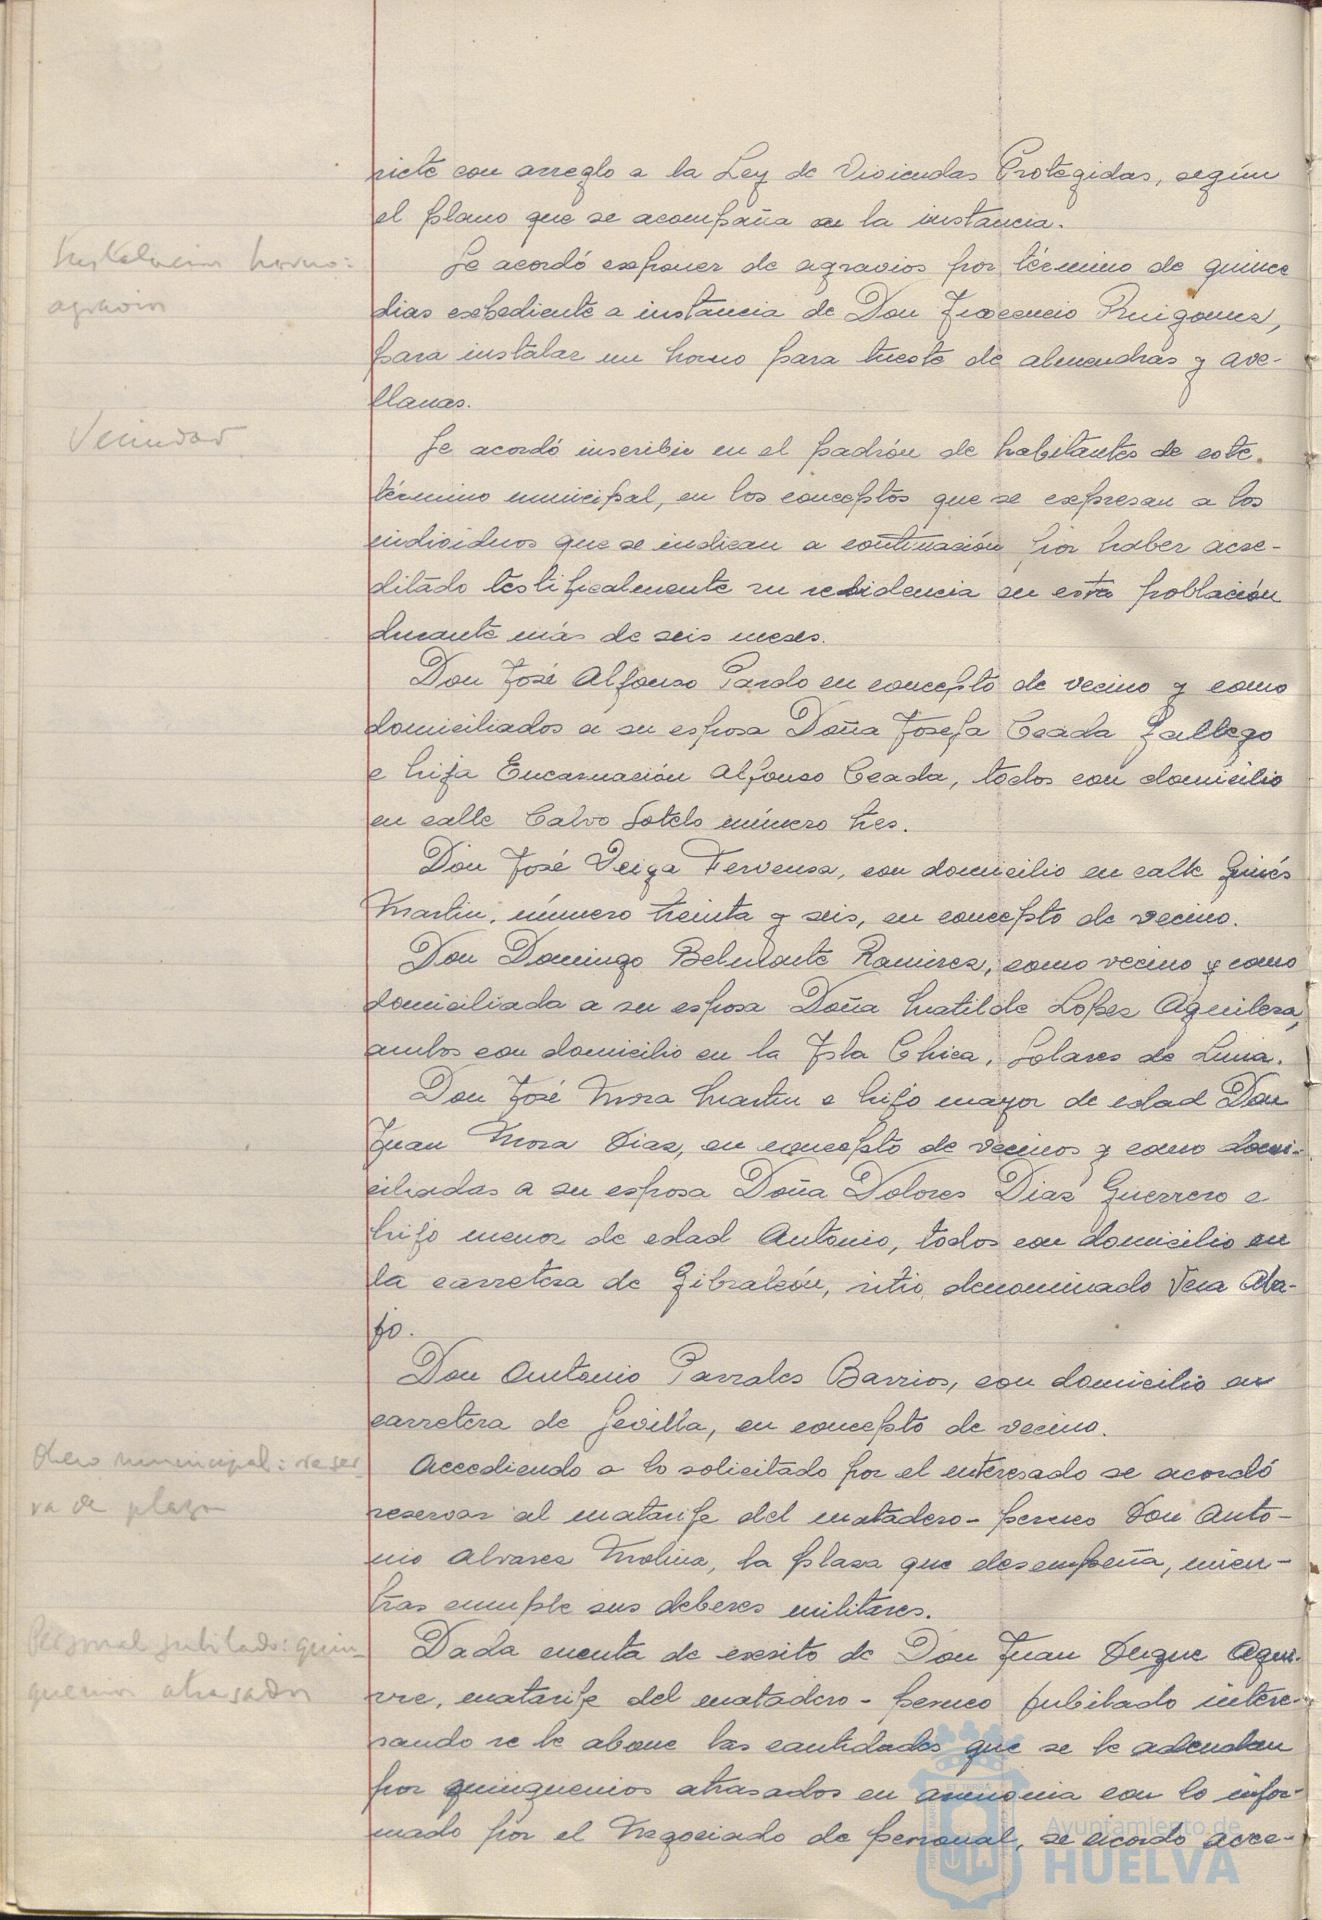 riete con arreglo a la Ley de Viviendas Protegidas, según
el plano que se acompaña en la instancia.
Instalacion horno:
agravios
Se acordó exponer de agravios por término de quince
dias expediente a instancia de Don Inocencio Ruigomez,
para instalar un horno para tueste de almendras y ave-
llanas.
Vecindad
Se acordó inscribir en el padrón de habitantes de este
término municipal, en los conceptos que se expresan a los
individuos que se indican a continuación por haber acre-
ditado testificalmente su residencia en esta población
durante más de seis meses.
Don José Alfonso Pardo en concepto de vecino y como
domiciliados a su esposa Doña Josefa Ceada Gallego
e hija Encarnación Alfonso Ceada, todos con domicilio
en calle Calvo Sotelo número tres.
Don José Veiga Fervensa, con domicilio en calle Ginés
Martin, número treinta y seis, en concepto de vecino.
Don Domingo Belmonte Ramirez, como vecino y como
domiciliada a su esposa Doña Matilde Lopez Aguilera,
ambos con domicilio en la Isla Chica, Solares de Luna.
Don José Mora Martin e hijo mayor de edad Don
Juan Mora Diaz, en concepto de vecinos y como domi-
ciliadas a su esposa Doña Dolores Diaz Guerrero e
hijo menor de edad Antonio, todos con domicilio en
la carretera de Gibraleón, sitio denominado Vera Aba-
jo.
Don Antonio Parrales Barrios, con domicilio en
carretera de Sevilla, en concepto de vecino.
Obrero municipal: reser
va de plaza
Accediendo a lo solicitado por el interesado se acordó
reservar al matarife del matadero-perneo Don Anto-
nio Alvarez Molina, la plaza que desempeña, mien-
tras cumple sus deberes militares.
Personal jubilado: quin-
quenios atrasados
Dada cuenta de escrito de Don Juan Duque Agui-
rre, matarife del matadero-perneo jubilado intere-
sando se le abone las cantidades que se le adeudan
por quinquenios atrasados en armonia con lo infor-
mado por el Negociado de personal, se acordo acce-
Ayuntamiento de
HUELVA